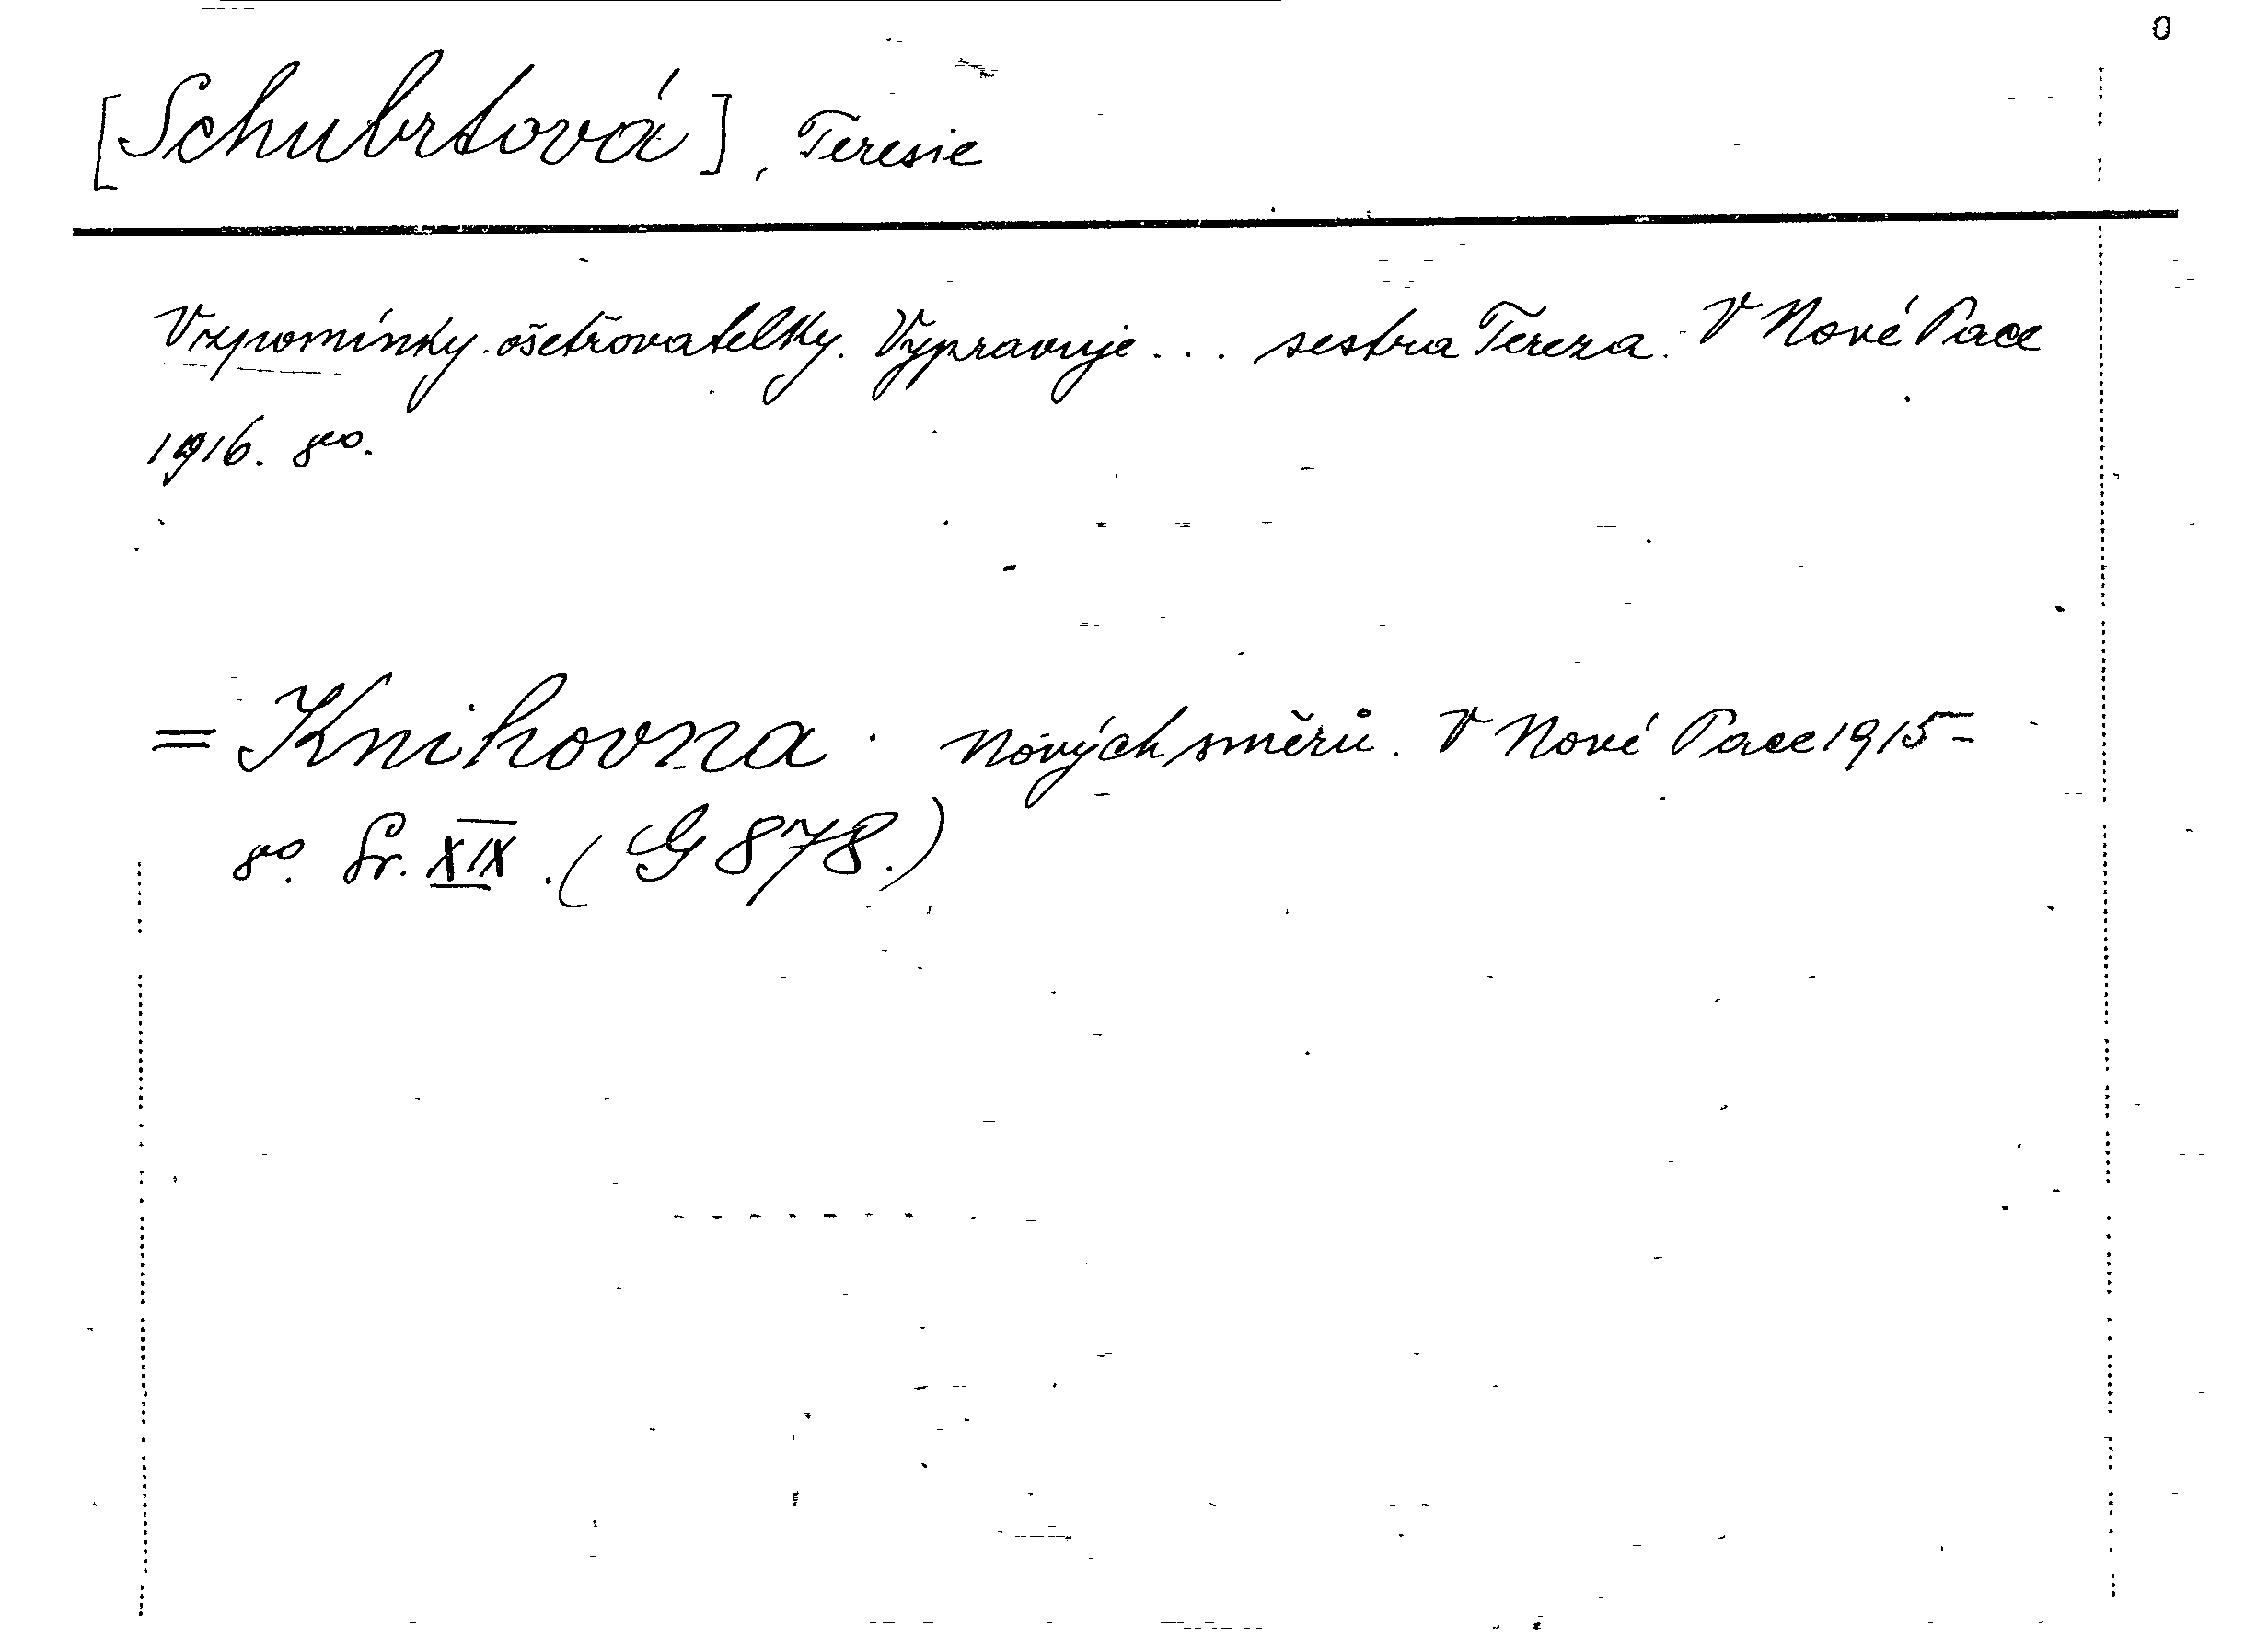 0
[Schubrtová], Teresie
Vzpomínky ošetřovatelky. Vypravuje... sestra Tereza. V Nové Pace
1916. 8vo.
= Knihovna. Nových směrů. V Nové Pace 1915-
8o. Sv. XIX. (G 878.)